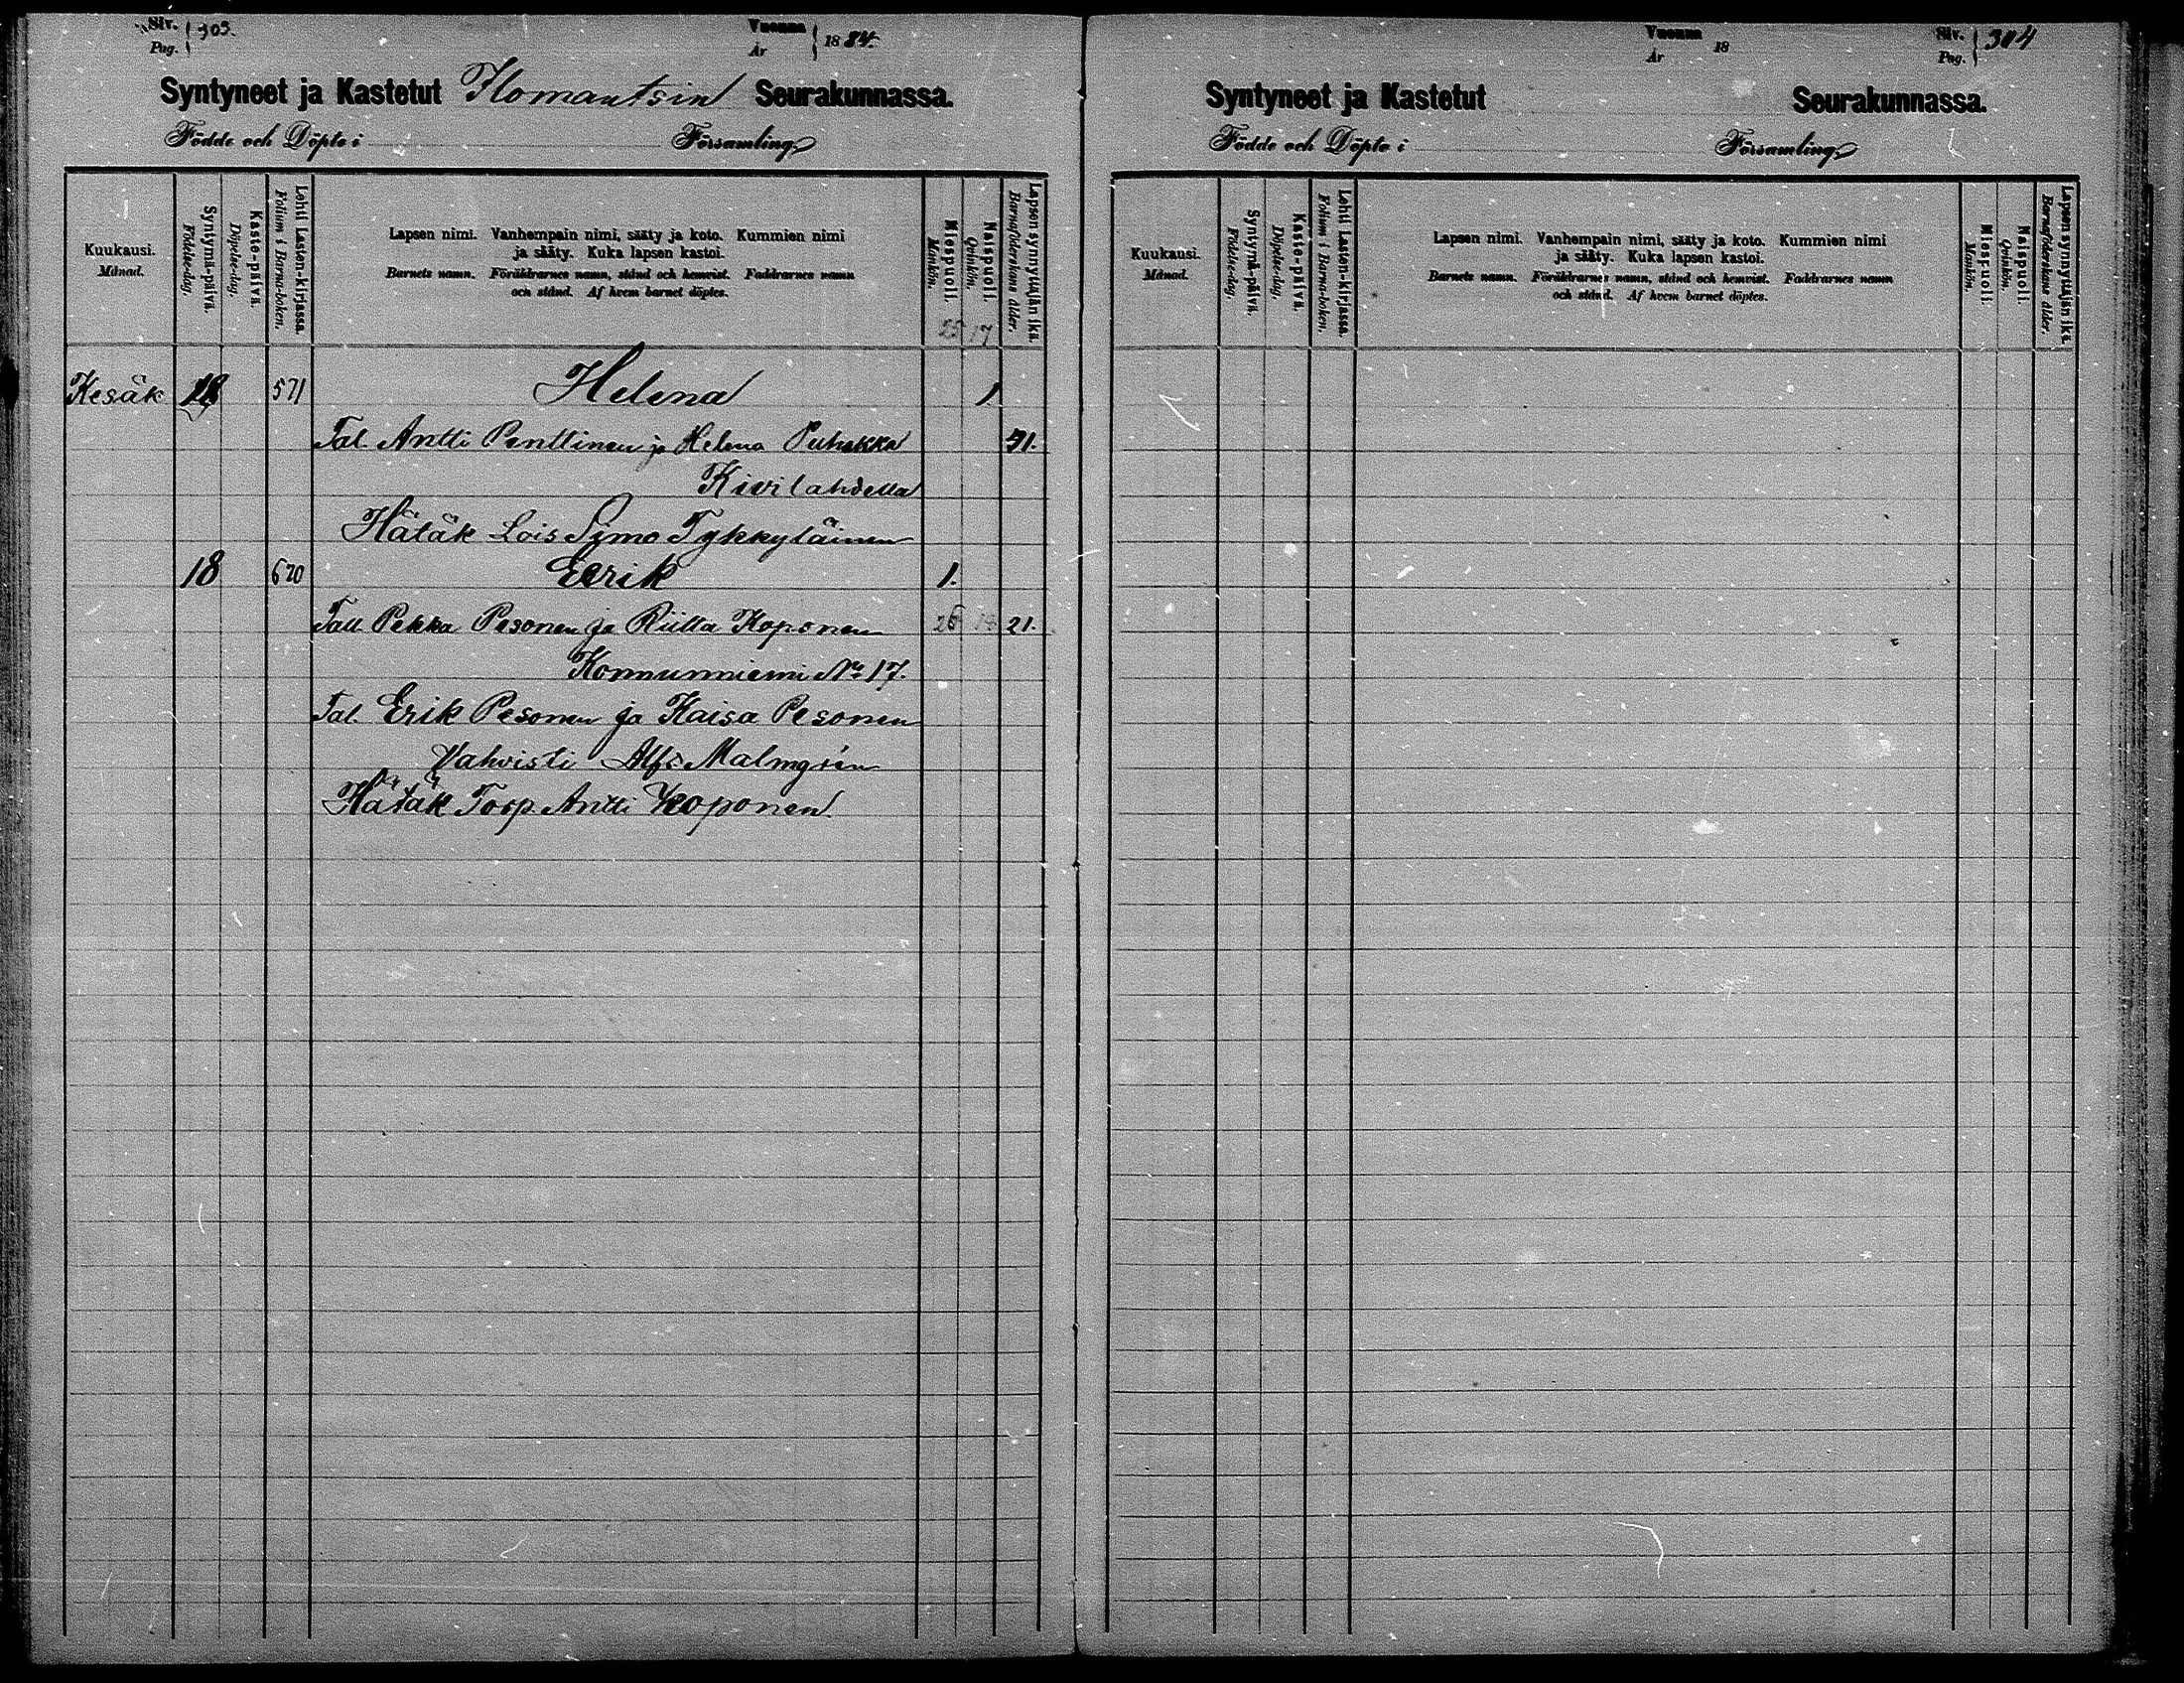 Siv. Pag. 303.
Vuonna År 1884.
Syntyneet ja Kastetut Ilomantsin Seurakunnassa.
Födde och Döpte i Församling
Kuukausi. Månad.
Syntymä-päivä. Födelse-dag.
Kaste-päivä. Döpelse-dag.
Lehti Lasten-kirjassa. Folium i Barna-boken.
Lapsen nimi. Vanhempain nimi, sääty ja koto. Kummien nimi
ja sääty. Kuka lapsen kastoi.
Barnets namn. Föräldrarnes namn, stånd och hemvist. Faddrarnes namn
och stånd. Af hvem barnet döptes.
Miespuoli. Mankön.
Naispuoli. Qvinkön.
Lapsen synnyttäjän ikä. Barnaföderskans ålder.
25 17
Kesäk 18 571 Helena 1.
Tal. Antti Penttinen ja Helena Puhakka 31.
Kivilahdella
Hätäk Lois Simo Tykkyläinen
18 620 Eerik 1.
Tall Pekka Pesonen ja Riitta Koponen 26 18 21.
Konnunniemi No 17.
Tal. Erik Pesonen ja Kaisa Pesonen
Vahvisti Alfr Malmgrén
Hätäk Torp. Antti Koponen.
Vuonna År 18
Siv. Pag. 304
Syntyneet ja Kastetut Seurakunnassa.
Födde och Döpte i Församling
Kuukausi. Månad.
Syntymä-päivä. Födelse-dag.
Kaste-päivä. Döpelse-dag.
Lehti Lasten-kirjassa. Folium i Barna-boken.
Lapsen nimi. Vanhempain nimi, sääty ja koto. Kummien nimi
ja sääty. Kuka lapsen kastoi.
Barnets namn. Föräldrarnes namn, stånd och hemvist. Faddrarnes namn
och stånd. Af hvem barnet döptes.
Miespuoli. Mankön.
Naispuoli. Qvinkön.
Lapsen synnyttäjän ikä. Barnaföderskans ålder.